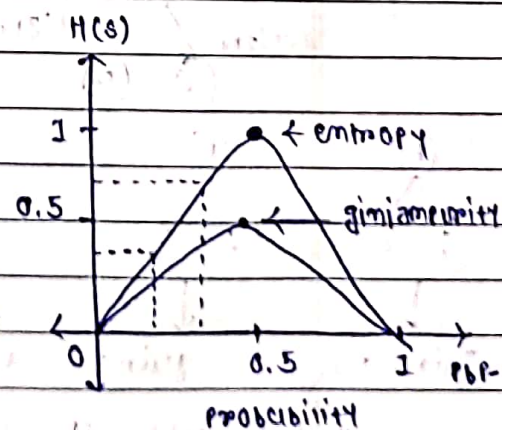 H(S)
1
← entropy
0.5
giniimpurity
0
0.5
1
PbP-
probability